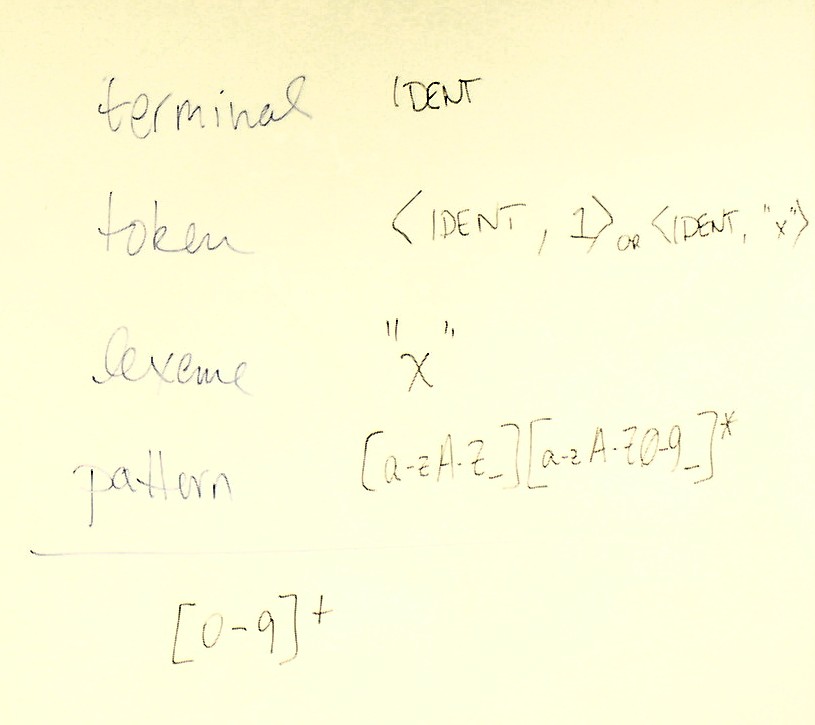 terminal IDENT
token <IDENT, 1> OR <IDENT, "x">
lexeme "x"
pattern [a-zA-Z_][a-zA-Z0-9_]*
[0-9]+